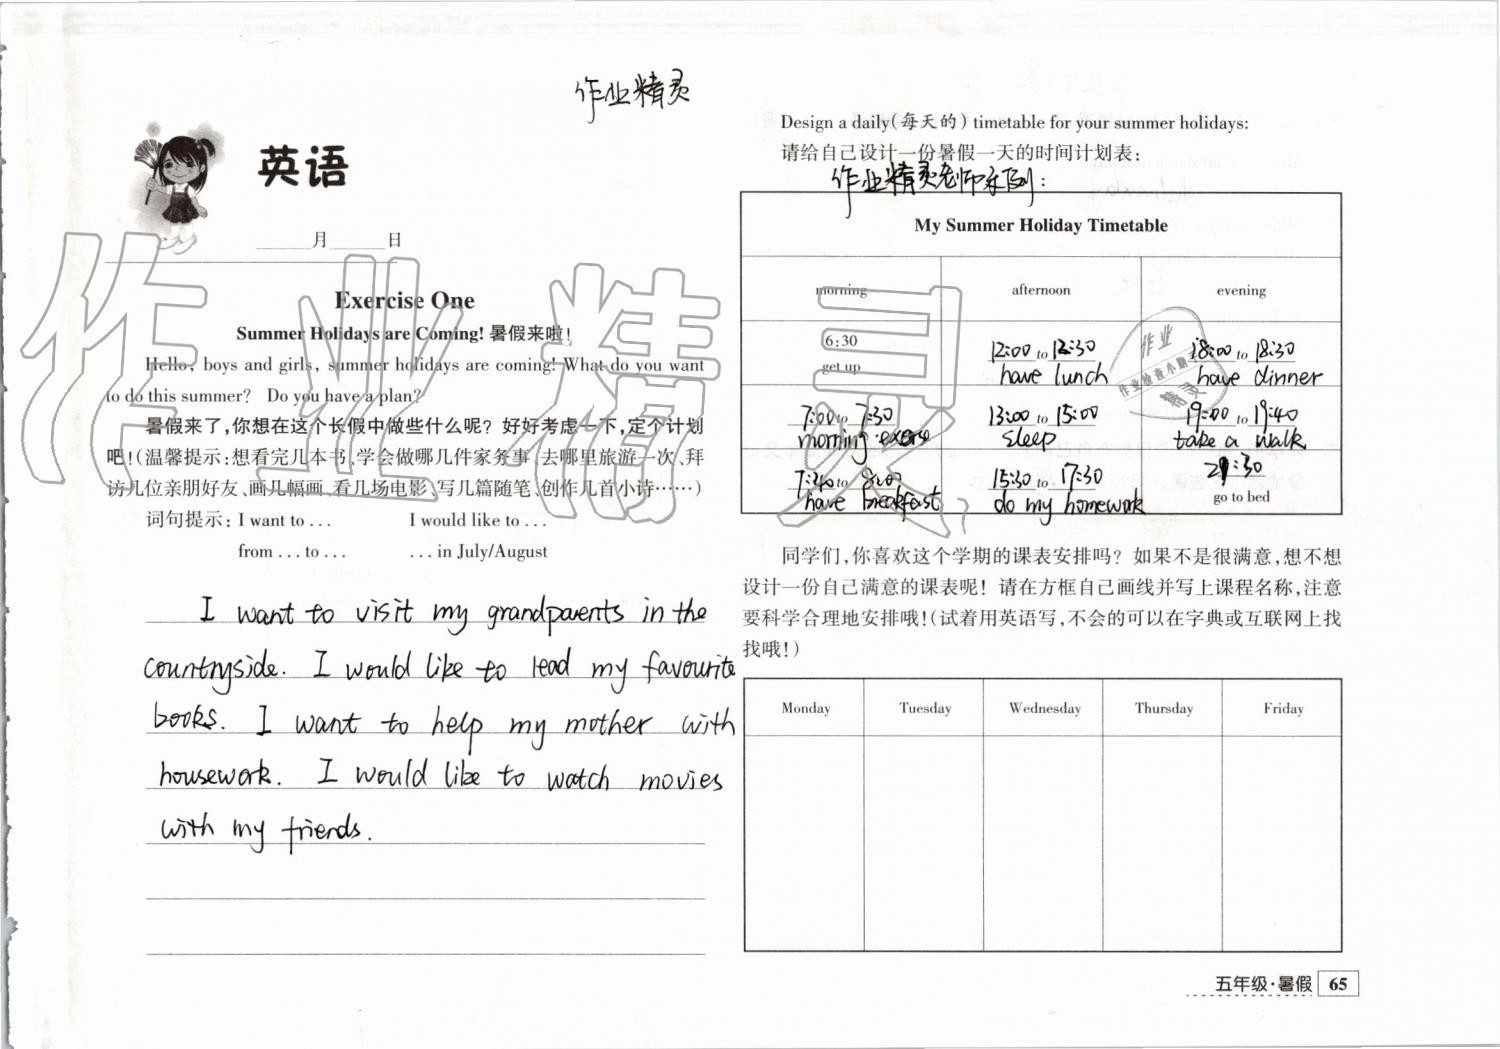 作业精灵
英语
月 日
Exercise One
Summer Holidays are Coming! 暑假来啦!
Hello, boys and girls, summer holidays are coming! What do you want
to do this summer? Do you have a plan?
暑假来了,你想在这个长假中做些什么呢? 好好考虑一下,定个计划
吧!(温馨提示:想看完几本书、学会做哪几件家务事、去哪里旅游一次、拜
访几位亲朋好友、画几幅画、看几场电影、写几篇随笔、创作几首小诗……)
词句提示: I want to ... I would like to ...
from ... to ... ... in July/August
I want to visit my grandparents in the
countryside. I would like to read my favourite
books. I want to help my mother with
housework. I would like to watch movies
with my friends.
Design a daily(每天的) timetable for your summer holidays:
请给自己设计一份暑假一天的时间计划表:
作业精灵老师系列:
My Summer Holiday Timetable
morning afternoon evening
6:30 12:00 to 12:30 18:00 to 18:30
get up have lunch have dinner
7:00 to 7:30 13:00 to 15:00 19:00 to 19:40
morning sleep take a walk
7:40 to 8:00 15:30 to 17:30 21:30
have breakfast do my homework go to bed
同学们,你喜欢这个学期的课表安排吗? 如果不是很满意,想不想
设计一份自己满意的课表呢! 请在方框自己画线并写上课程名称,注意
要科学合理地安排哦!(试着用英语写,不会的可以在字典或互联网上找
找哦!)
Monday Tuesday Wednesday Thursday Friday
五年级·暑假 65
作业精灵
作业
作业检查小助
精灵